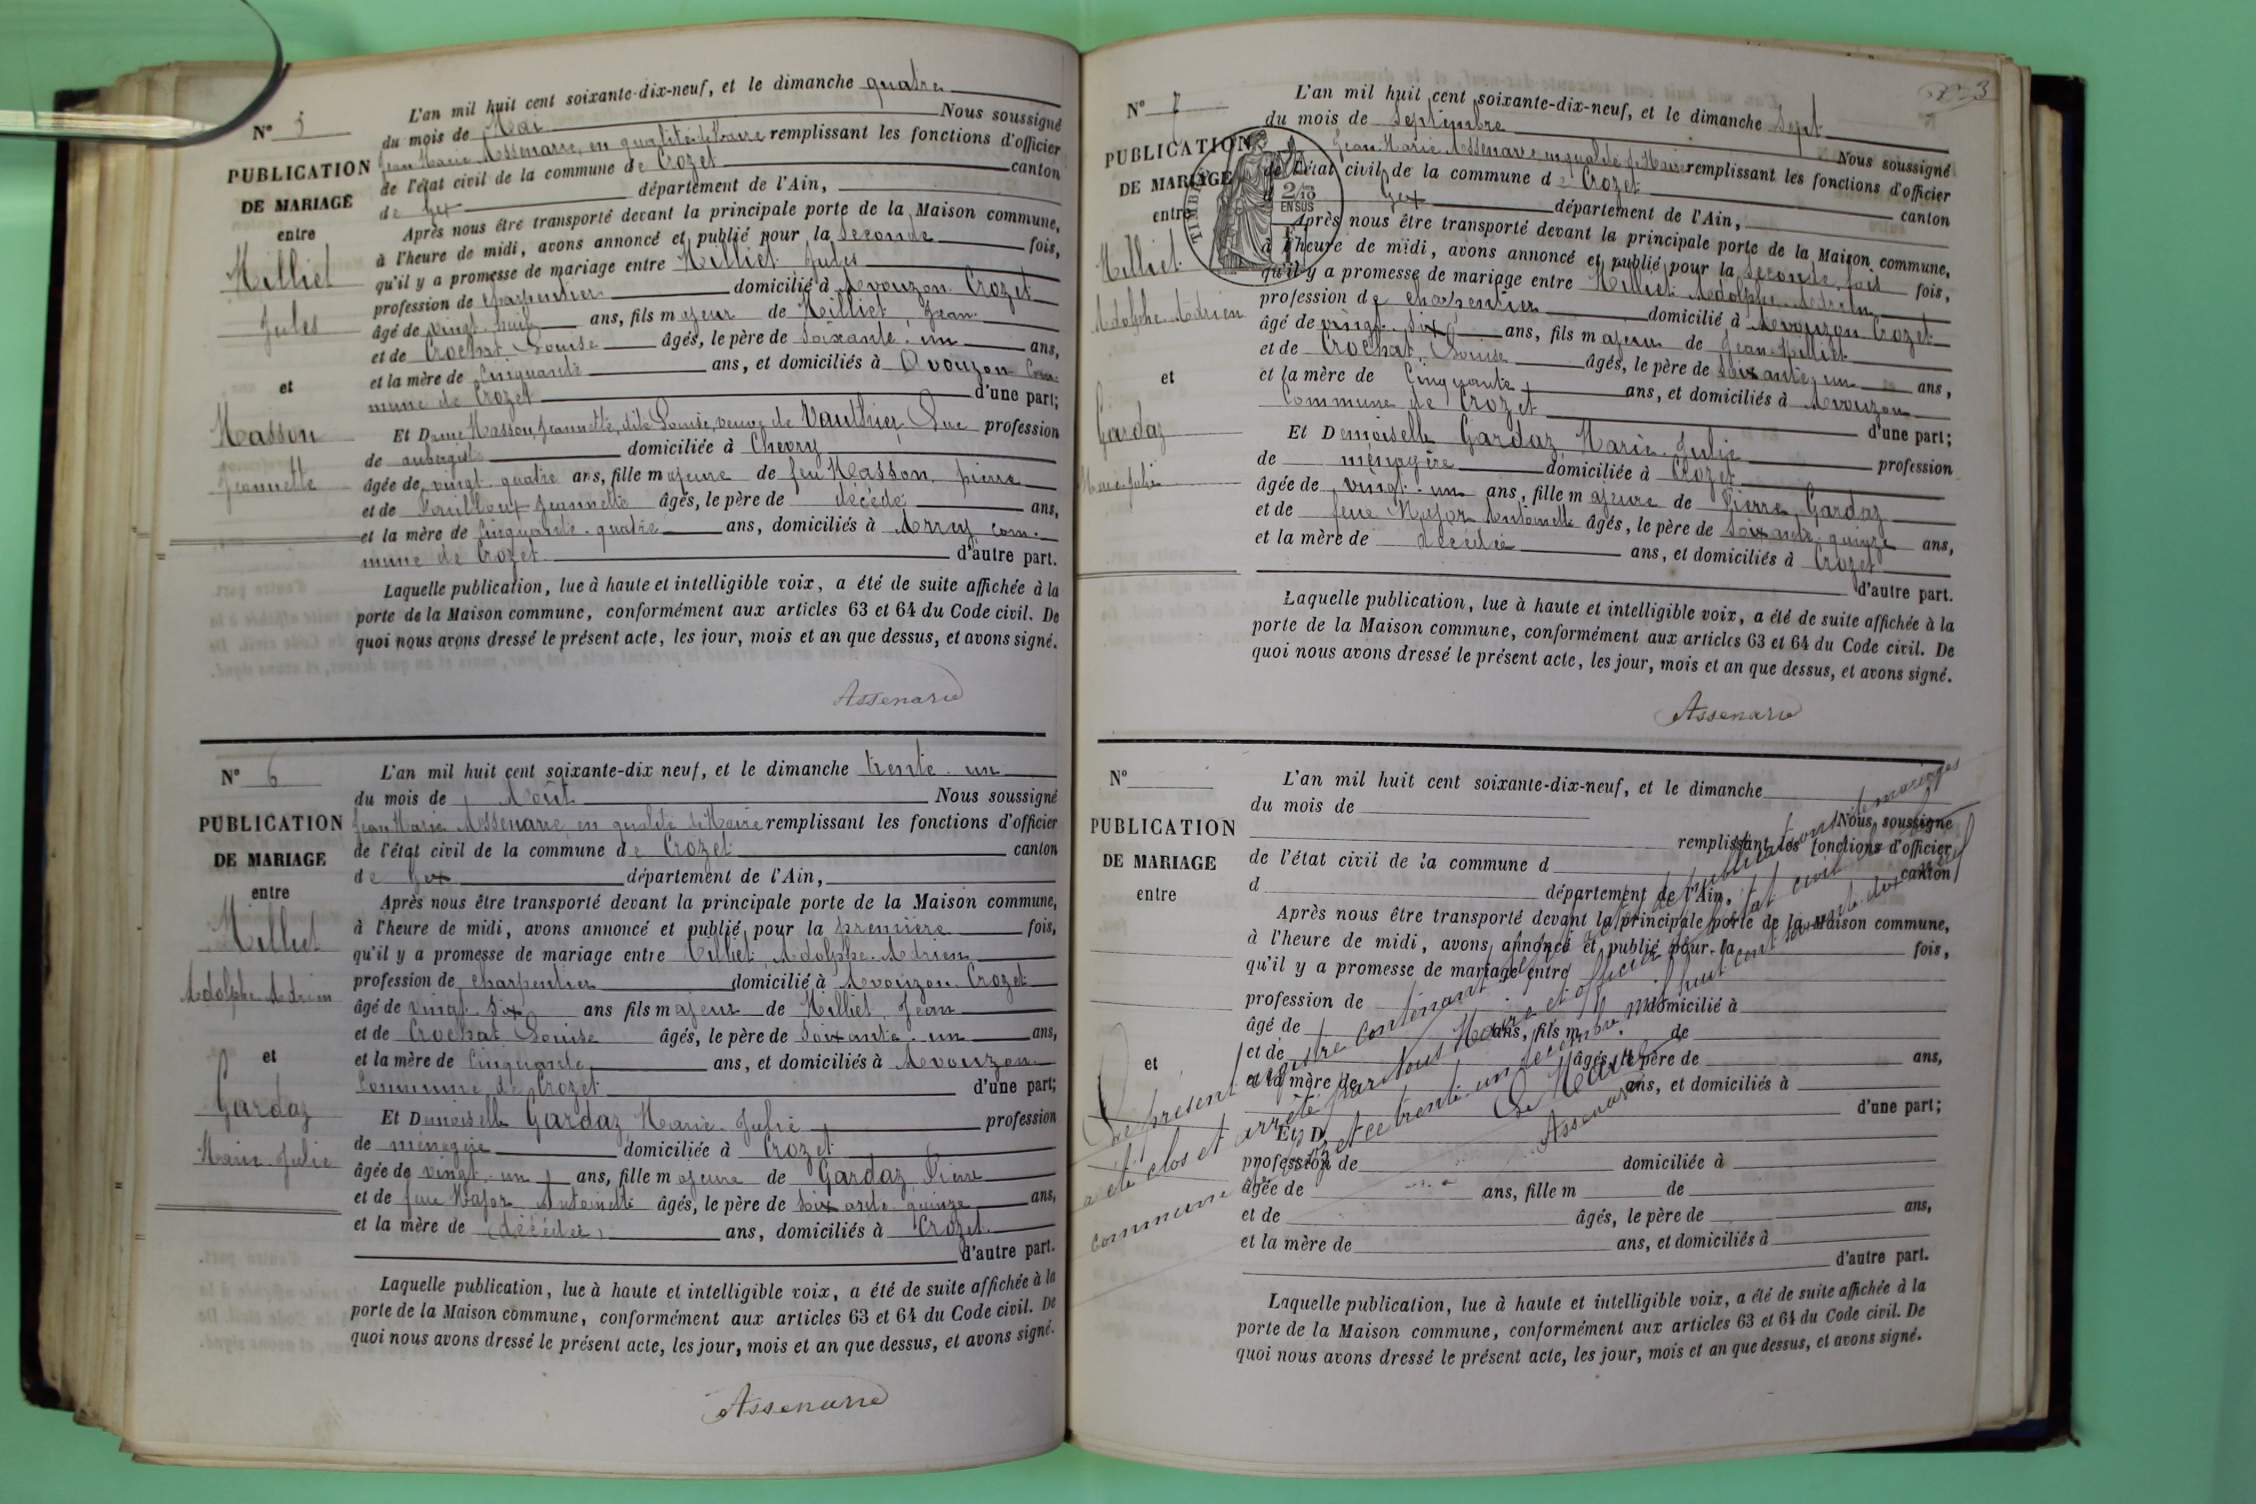 N° 5
PUBLICATION
DE MARIAGE
entre
Milliet
Jules
et
Masson
Jeannette
L'an mil huit cent soixante-dix-neuf, et le dimanche quatre
du mois de Mai Nous soussigné
Jean Marie Assenare, en qualité de Maire remplissant les fonctions d'officier
de l'état civil de la commune de Crozet canton
de Gex département de l'Ain,
Après nous être transporté devant la principale porte de la Maison commune,
à l'heure de midi, avons annoncé et publié pour la seconde fois,
qu'il y a promesse de mariage entre Milliet Jules
profession de charpentier domicilié à Avouzon Crozet
âgé de vingt-huit ans, fils majeur de Milliet Jean
et de Crochat Louise âgés, le père de soixante-un ans,
et la mère de cinquante ans, et domiciliés à Avouzon Com-
mune de Crozet d'une part;
Et Dame Masson Jeannette, dite Louise, veuve de Vaulhier Luc profession
de aubergiste domiciliée à Chevry
âgée de vingt quatre ans, fille majeure de feu Masson pierre
et de Jeannette âgés, le père de décédé ans,
et la mère de Cinquante-quatre ans, domiciliés à com-
mune de Crozet d'autre part.
Laquelle publication, lue à haute et intelligible voix, a été de suite affichée à la
porte de la Maison commune, conformément aux articles 63 et 64 du Code civil. De
quoi nous avons dressé le présent acte, les jour, mois et an que dessus, et avons signé.
Assenare
N° 6
PUBLICATION
DE MARIAGE
entre
Milliet
Adolphe Adrien
et
Gardaz
Marie Julie
L'an mil huit cent soixante-dix neuf, et le dimanche trente-un
du mois de Août Nous soussigné
Jean Marie Assenare, en qualité de Maire remplissant les fonctions d'officier
de l'état civil de la commune de Crozet canton
de Gex département de l'Ain,
Après nous être transporté devant la principale porte de la Maison commune,
à l'heure de midi, avons annoncé et publié pour la première fois,
qu'il y a promesse de mariage entre Milliet Adolphe Adrien
profession de charpentier domicilié à Avouzon Crozet
âgé de vingt six ans fils majeur de Milliet Jean
et de Crochat Louise âgés, le père de soixante-un ans,
et la mère de Cinquante ans, et domiciliés à Avouzon
Commune de Crozet d'une part;
Et Demoiselle Gardaz Marie Julie profession
de ménagère domiciliée à Crozet
âgée de vingt-un ans, fille majeure de Gardaz Pierre
et de feue Major Antoinette âgés, le père de soixante quinze ans,
et la mère de (décédée) ans, domiciliés à Crozet
d'autre part.
Laquelle publication, lue à haute et intelligible voix, a été de suite affichée à la
porte de la Maison commune, conformément aux articles 63 et 64 du Code civil. De
quoi nous avons dressé le présent acte, les jour, mois et an que dessus, et avons signé.
Assenare
3
N° 7
PUBLICATION
DE MARIAGE
entre
Milliet
Adolphe Adrien
et
Gardaz
Marie Julie
TIMBRE
2/10
EN SUS
L'an mil huit cent soixante-dix-neuf, et le dimanche Sept
du mois de Septembre Nous soussigné
Jean Marie Assenare en qualité de Maire remplissant les fonctions d'officier
de l'état civil de la commune de Crozet canton
d Gex département de l'Ain,
Après nous être transporté devant la principale porte de la Maison commune,
à l'heure de midi, avons annoncé et publié pour la seconde fois fois,
qu'il y a promesse de mariage entre Milliet Adolphe Adrien
profession de charpentier domicilié à Avouzon Crozet
âgé de vingt-six ans, fils majeur de Jean Milliet
et de Crochat Louise âgés, le père de soixante-un ans,
et la mère de Cinquante ans, et domiciliés à Avouzon
Commune de Crozet d'une part;
Et Demoiselle Gardaz Marie Julie profession
de ménagère domiciliée à Crozet
âgée de vingt-un ans, fille majeure de Pierre Gardaz
et de feue Major Antoinette âgés, le père de soixante quinze ans,
et la mère de décédée ans, et domiciliés à Crozet
d'autre part.
Laquelle publication, lue à haute et intelligible voix, a été de suite affichée à la
porte de la Maison commune, conformément aux articles 63 et 64 du Code civil. De
quoi nous avons dressé le présent acte, les jour, mois et an que dessus, et avons signé.
Assenare
N°
PUBLICATION
DE MARIAGE
entre
et
L'an mil huit cent soixante-dix-neuf, et le dimanche
du mois de Nous soussigné
remplissant les fonctions d'officier
de l'état civil de la commune d canton
d département de l'Ain,
Après nous être transporté devant la principale porte de la Maison commune,
à l'heure de midi, avons annoncé et publié pour la fois,
qu'il y a promesse de mariage entre
profession de domicilié à
âgé de ans, fils m de
et de âgés, le père de ans,
et la mère de ans, et domiciliés à
d'une part;
Et D
profession de domiciliée à
âgée de ans, fille m de
et de âgés, le père de ans,
et la mère de ans, et domiciliés à
d'autre part.
Laquelle publication, lue à haute et intelligible voix, a été de suite affichée à la
porte de la Maison commune, conformément aux articles 63 et 64 du Code civil. De
quoi nous avons dressé le présent acte, les jour, mois et an que dessus, et avons signé.
Le présent registre contenant publications de mariages
a été clos et arrêté par Nous Maire et officier de l'état civil
commune de Crozet ce trente-un décembre mil huit cent soixante-dix-neuf
Le Maire
Assenare